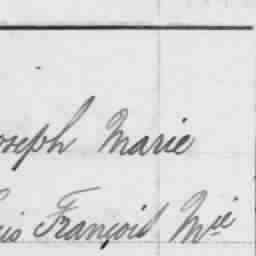 oseph Marie
uis François Mie